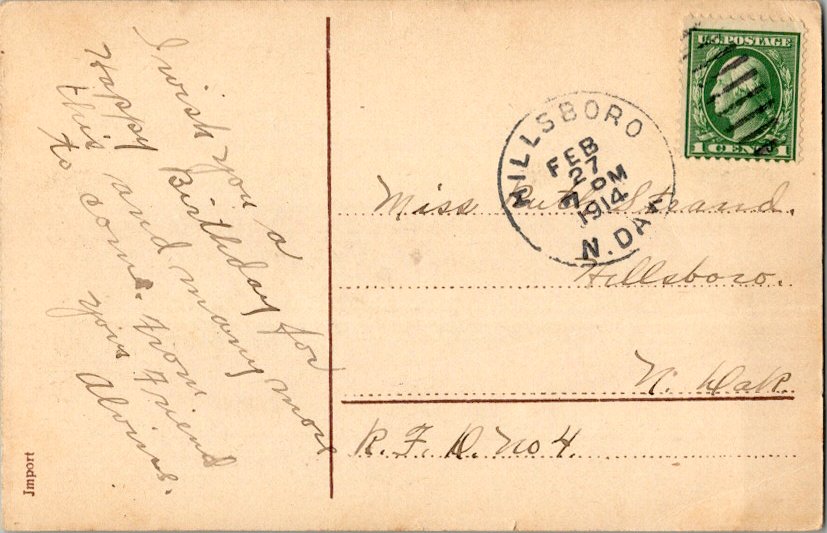 I wish you a
Happy Birthday for
this and many more
to come. from
your Friend
Alvina.
Import
U.S. POSTAGE
1 CENT 1
HILLSBORO
FEB
27
7 PM
1914
N. DAK.
Miss Ruth Strand.
Hillsboro.
N. Dak.
R. F. D. No 4.